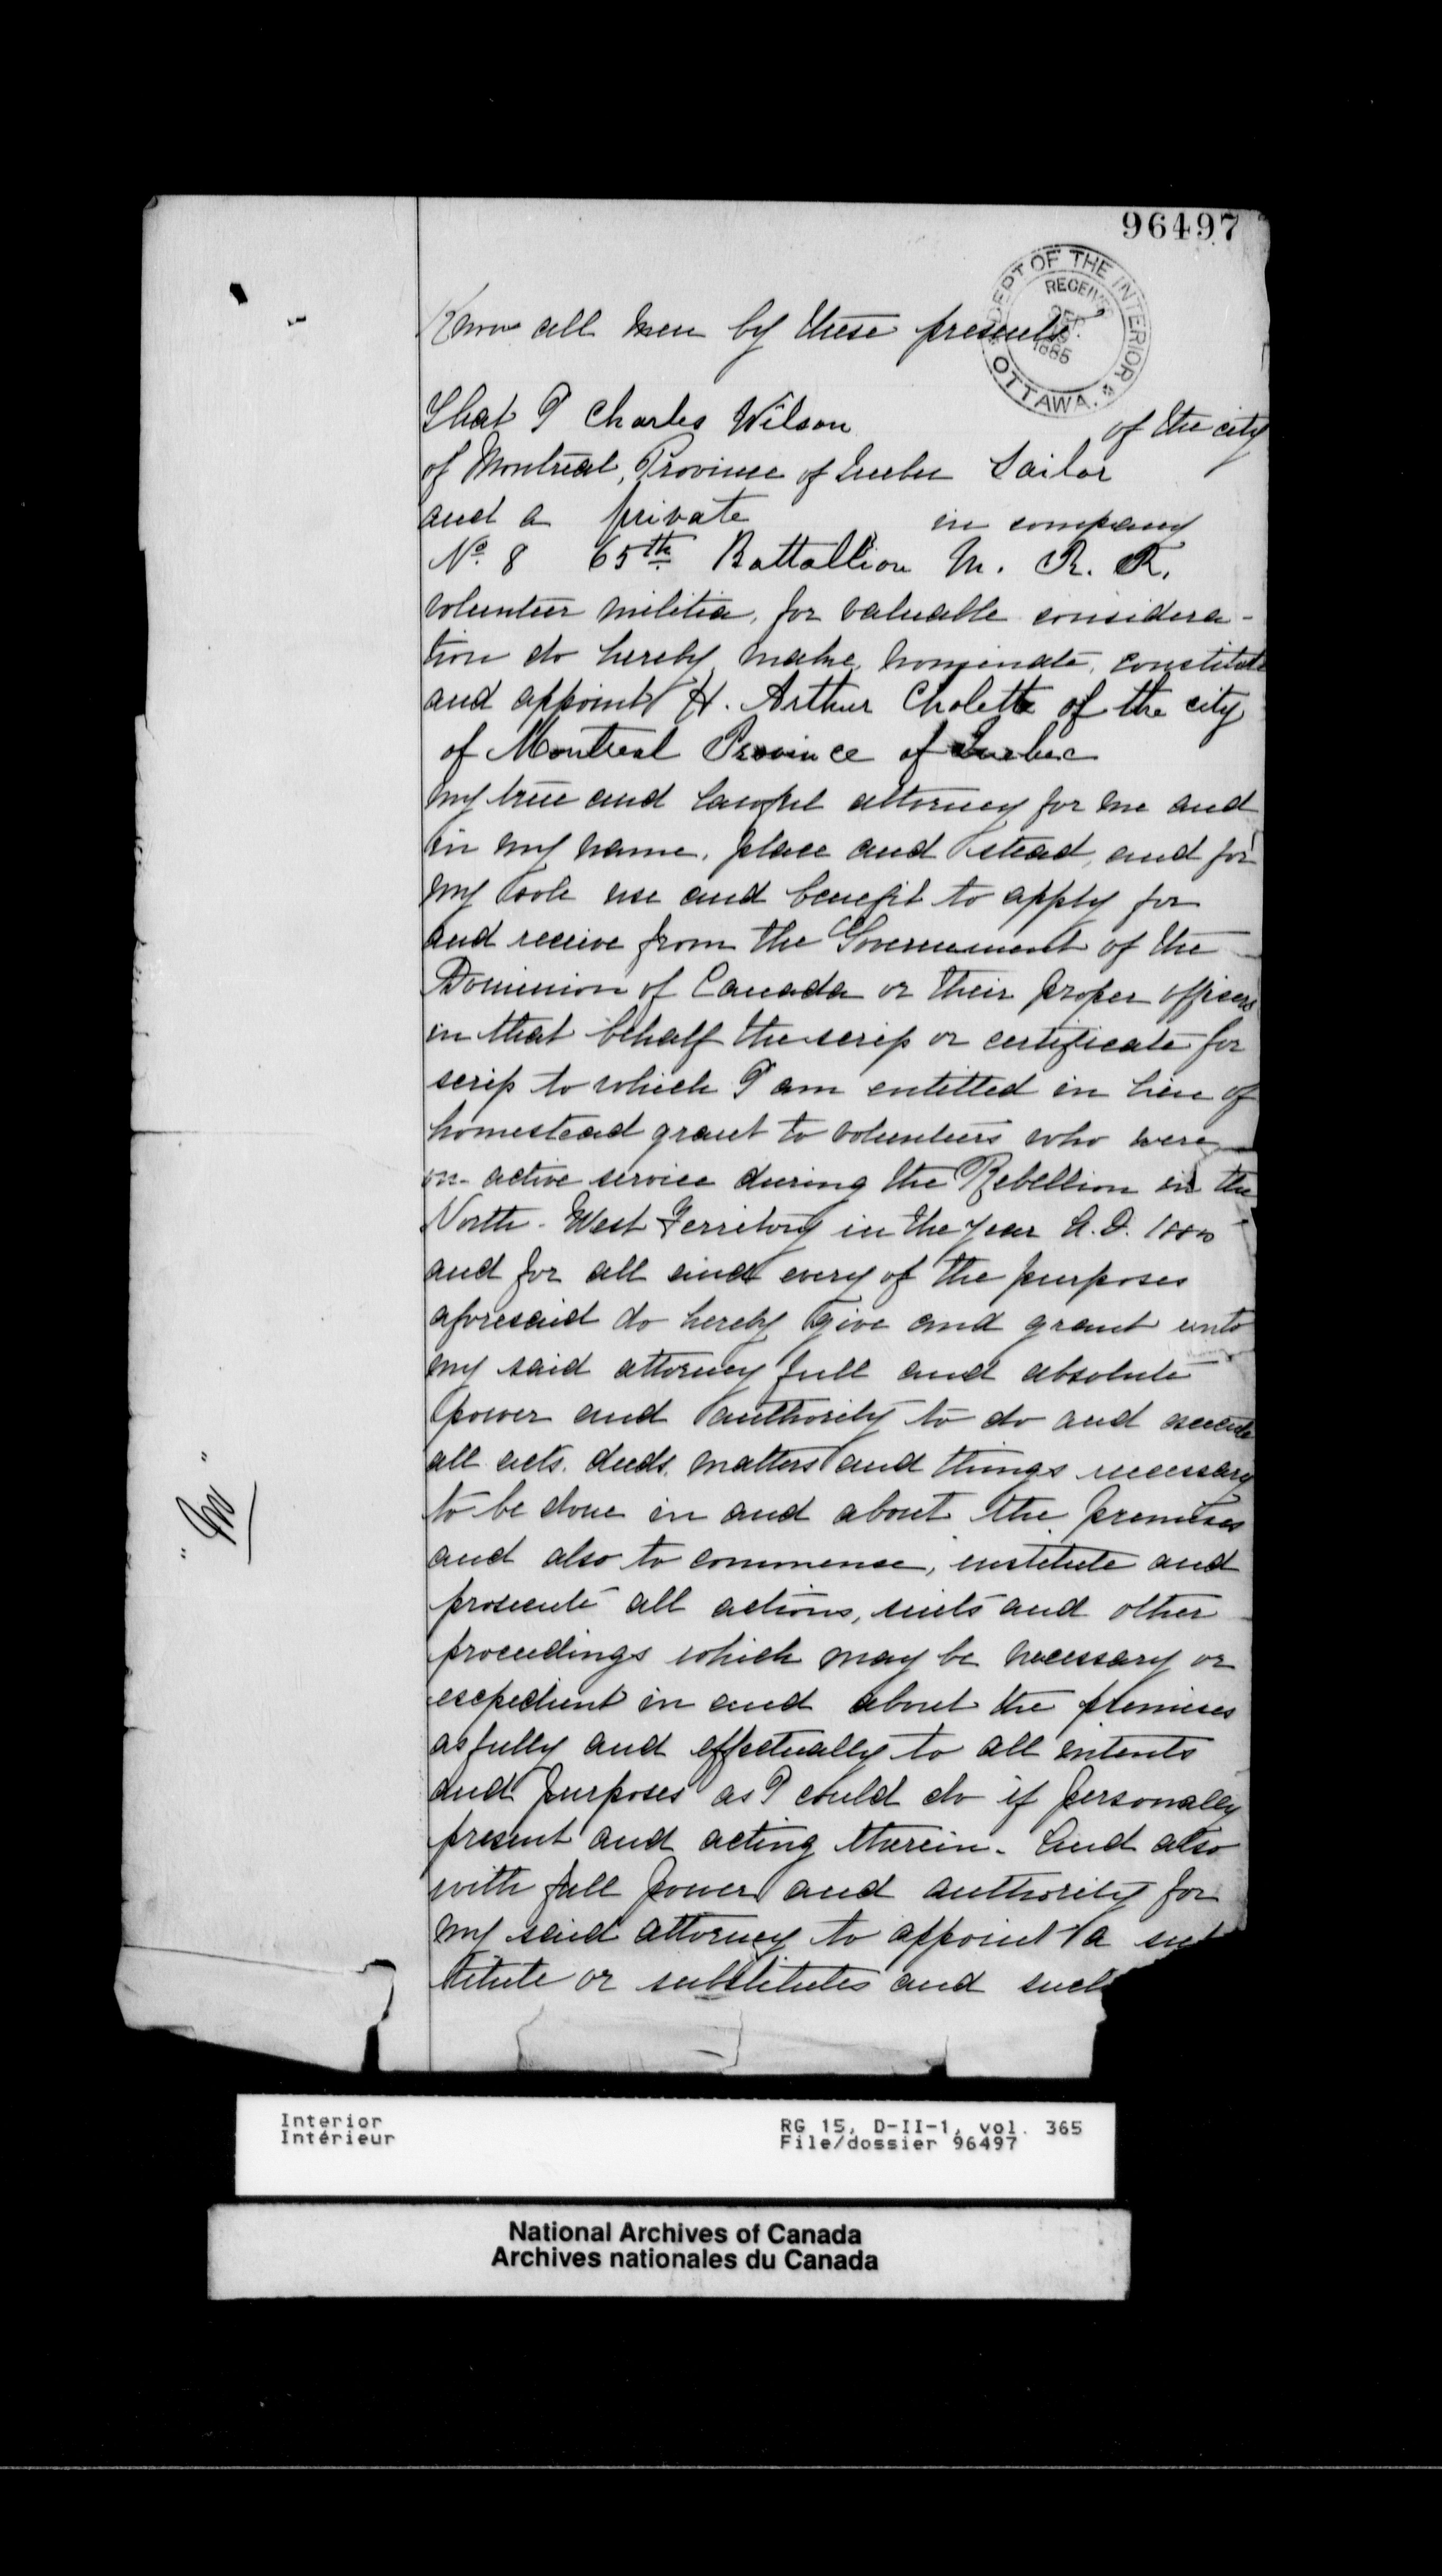 96497
DEPT OF THE INTERIOR
RECEIVED
1885
OTTAWA.
Know all men by these presents
That I Charles Wilson of the city
of Montreal, Province of Quebec Tailor
and a private in company
No. 8 65th Battallion M. R. R.
volunteer militia, for valuable considera-
tion do hereby make, nominate, constitute
and appoint H. Arthur Cholette of the city
of Montreal Province of Quebec
my true and lawful attorney for me and
in my name, place and stead, and for
my sole use and benefit to apply for
and receive from the Government of the
Dominion of Canada or their proper officers
in that behalf the scrip or certificate for
scrip to which I am entitled in lieu of
homestead grant to volunteers who were
on active service during the Rebellion in the
North-West Territory in the year A.D. 1885
and for all and every of the purposes
aforesaid do hereby give and grant unto
my said attorney full and absolute
power and authority to do and execute
all acts, deeds, matters and things necessary
to be done in and about the premises
and also to commence, institute and
prosecute all actions, suits and other
proceedings which may be necessary or
expedient in and about the premises
as fully and effectually to all intents
and purposes as I could do if personally
present and acting therein. And also
with full power and authority for
my said attorney to appoint a sub
titute or substitutes and such
Interior
Intérieur
RG 15, D-II-1, vol. 365
File/dossier 96497
National Archives of Canada
Archives nationales du Canada